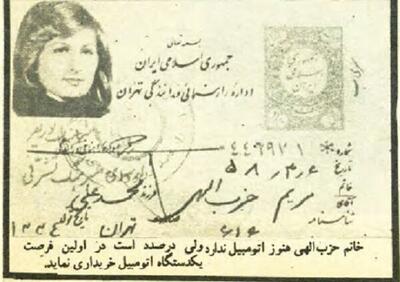 بسمه تعالی
جمهوری اسلامی ایران
اداره راهنمائی و رانندگی تهران
شماره ۴۴۶۹۲۱
تاریخ ۵۸/۳/۶
خانم
آقای
مریم حزب الهی
فرزند محمد علی
شناسنامه ۶۱۶
تهران
تاریخ تولد ۱۳۳۴
خانم حزب‌الهی هنوز اتومبیل ندارد ولی درصدد است در اولین فرصت
یکدستگاه اتومبیل خریداری نماید.